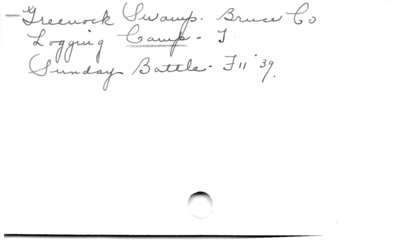 Greenock Swamp. Bruce Co
Logging Camp - J
Sunday Battle - F 11 '39.